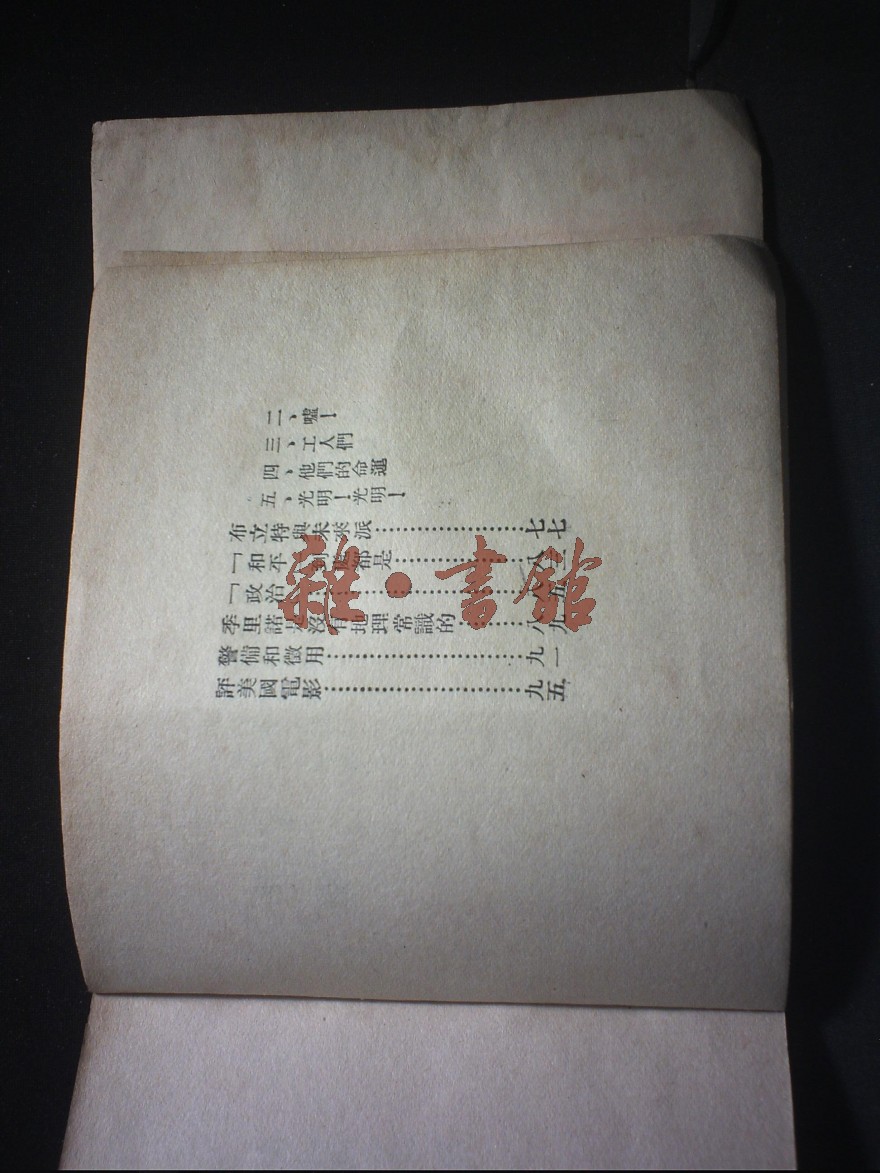 二、噓！
三、工人們
四、他們的命運
五、光明！光明！
布立特與未來派……七七
「和平 都是……八
「政治……八五
季里諾是沒有地理常識的……八九
警備和徵用……九一
評美國電影……九五
雜·書館